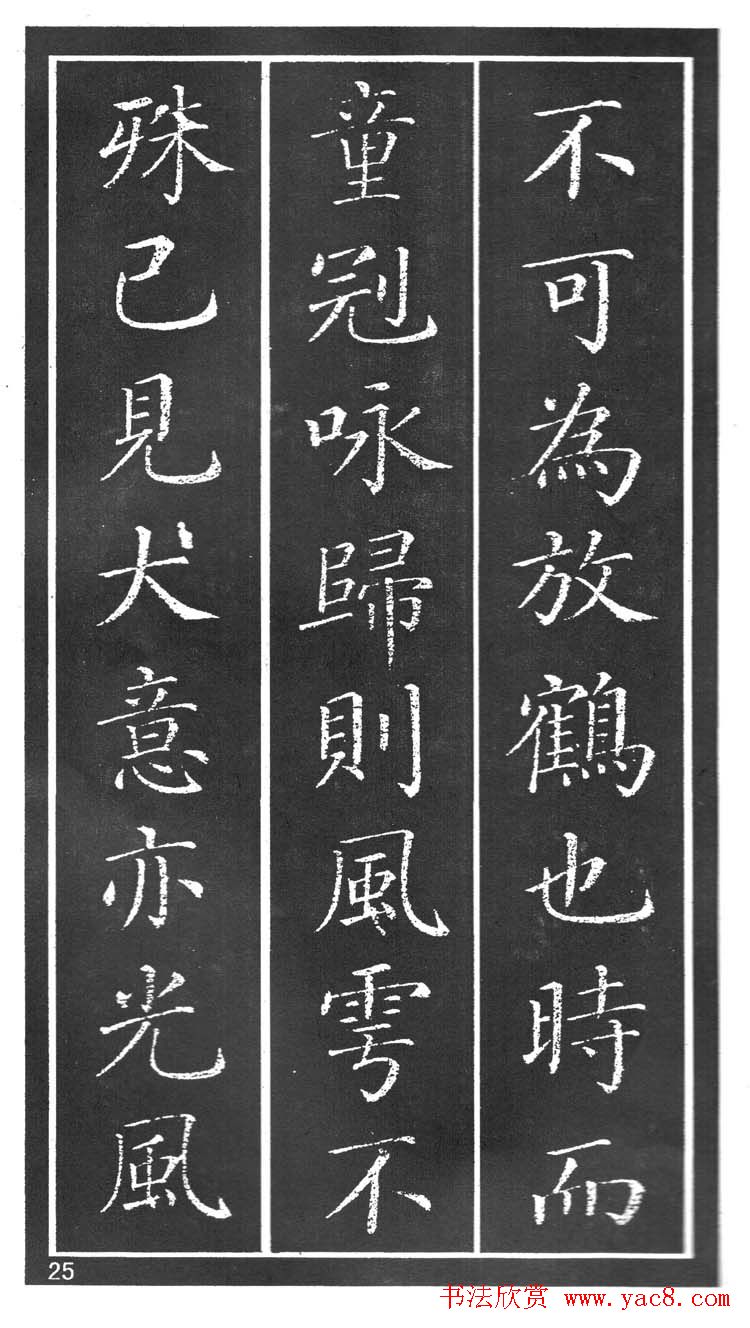 不可為放鶴也時而
童冠咏歸則風雩不
殊已見犬意亦光風
25
书法欣赏 www.yac8.com